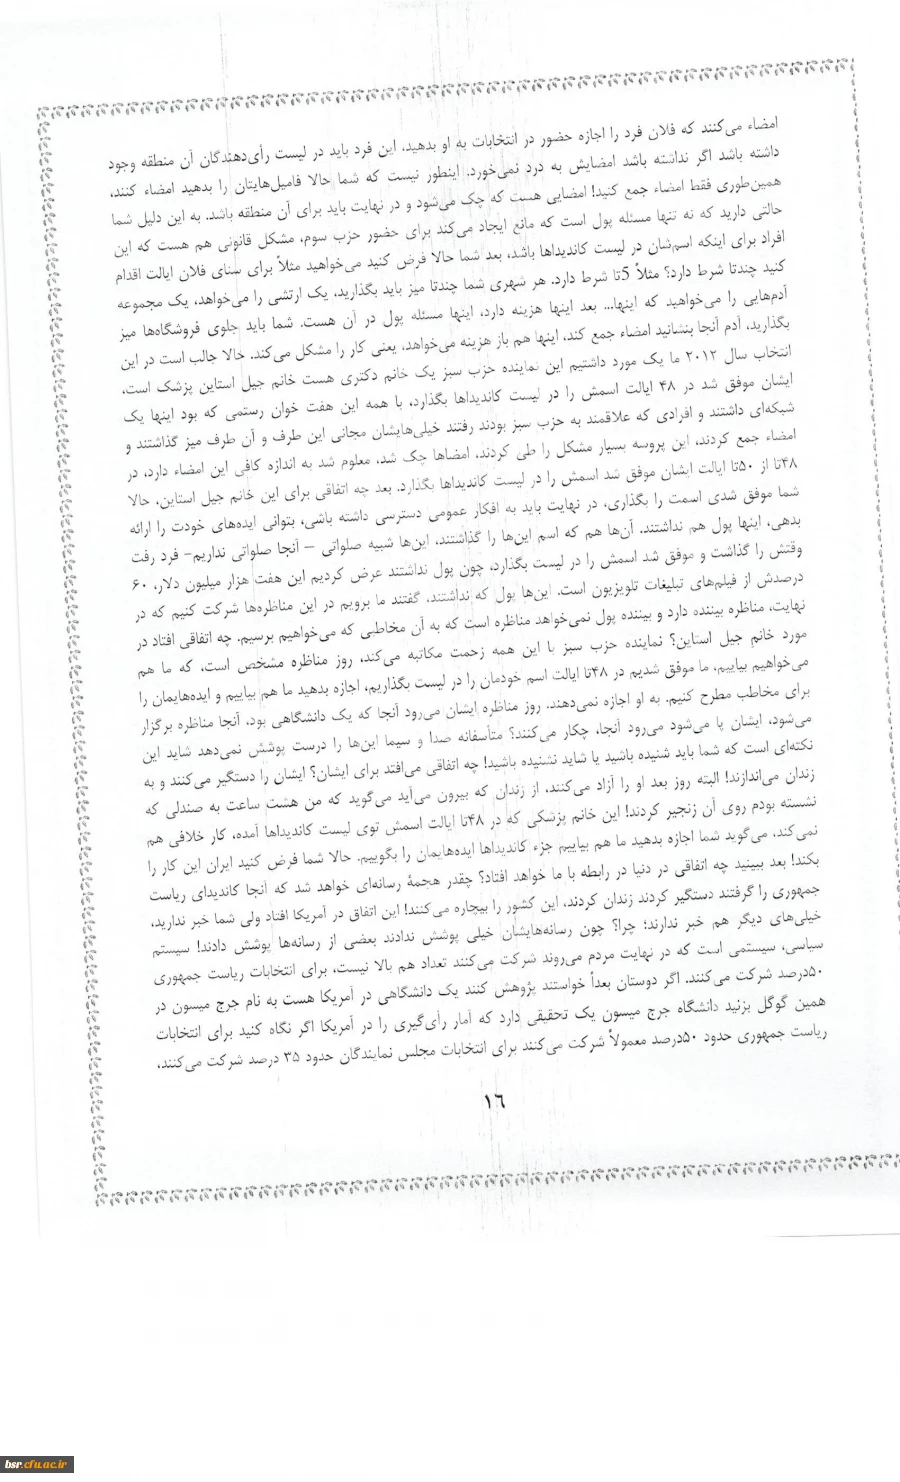 امضاء می‌کنند که فلان فرد را اجازه حضور در انتخابات به او بدهید، این فرد باید در لیست رأی‌دهندگان آن منطقه وجود
داشته باشد اگر نداشته باشد امضایش به درد نمی‌خورد. اینطور نیست که شما حالا فامیل‌هایتان را بدهید امضاء کنند،
همین‌طوری فقط امضاء جمع کنید! امضایی هست که چک می‌شود و در نهایت باید برای آن منطقه باشد. به این دلیل شما
حالتی دارید که نه تنها مسئله پول است که مانع ایجاد می‌کند برای حضور حزب سوم، مشکل قانونی هم هست که این
افراد برای اینکه اسم‌شان در لیست کاندیداها باشد، بعد شما حالا فرض کنید می‌خواهید مثلاً برای سنای فلان ایالت اقدام
کنید چندتا شرط دارد؟ مثلاً 5تا شرط دارد. هر شهری شما چندتا میز باید بگذارید، یک ارتشی را می‌خواهد، یک مجموعه
آدم‌هایی را می‌خواهید که اینها... بعد اینها هزینه دارد، اینها مسئله پول در آن هست. شما باید جلوی فروشگاه‌ها میز
بگذارید، آدم آنجا بنشانید امضاء جمع کند، اینها هم باز هزینه می‌خواهد، یعنی کار را مشکل می‌کند. حالا جالب است در این
انتخاب سال ۲۰۱۲ ما یک مورد داشتیم این نماینده حزب سبز یک خانم دکتری هست خانم جیل استاین پزشک است،
ایشان موفق شد در ۴۸ ایالت اسمش را در لیست کاندیداها بگذارد، با همه این هفت خوان رستمی که بود اینها یک
شبکه‌ای داشتند و افرادی که علاقمند به حزب سبز بودند رفتند خیلی‌هایشان مجانی این طرف و آن طرف میز گذاشتند و
امضاء جمع کردند، این پروسه بسیار مشکل را طی کردند، امضاها چک شد، معلوم شد به اندازه کافی این امضاء دارد، در
۴۸تا از ۵۰تا ایالت ایشان موفق شد اسمش را در لیست کاندیداها بگذارد. بعد چه اتفاقی برای این خانم جیل استاین، حالا
شما موفق شدی اسمت را بگذاری، در نهایت باید به افکار عمومی دسترسی داشته باشی، بتوانی ایده‌های خودت را ارائه
بدهی، اینها پول هم نداشتند. آن‌ها هم که اسم این‌ها را گذاشتند، این‌ها شبیه صلواتی – آنجا صلواتی نداریم- فرد رفت
وقتش را گذاشت و موفق شد اسمش را در لیست بگذارد، چون پول نداشتند عرض کردیم این هفت هزار میلیون دلار، ۶۰
درصدش از فیلم‌های تبلیغات تلویزیون است. این‌ها پول که نداشتند، گفتند ما برویم در این مناظره‌ها شرکت کنیم که در
نهایت، مناظره بیننده دارد و بیننده پول نمی‌خواهد مناظره است که به آن مخاطبی که می‌خواهیم برسیم. چه اتفاقی افتاد در
مورد خانم جیل استاین؟ نماینده حزب سبز با این همه زحمت مکاتبه می‌کند، روز مناظره مشخص است، که ما هم
می‌خواهیم بیاییم، ما موفق شدیم در ۴۸تا ایالت اسم خودمان را در لیست بگذاریم، اجازه بدهید ما هم بیاییم و ایده‌هایمان را
برای مخاطب مطرح کنیم. به او اجازه نمی‌دهند. روز مناظره ایشان می‌رود آنجا که یک دانشگاهی بود، آنجا مناظره برگزار
می‌شود، ایشان پا می‌شود می‌رود آنجا، چکار می‌کنند؟ متأسفانه صدا و سیما این‌ها را درست پوشش نمی‌دهد شاید این
نکته‌ای است که شما باید شنیده باشید یا شاید نشنیده باشید! چه اتفاقی می‌افتد برای ایشان؟ ایشان را دستگیر می‌کنند و به
زندان می‌اندازند! البته روز بعد او را آزاد می‌کنند، از زندان که بیرون می‌آید می‌گوید که من هشت ساعت به صندلی که
نشسته بودم روی آن زنجیر کردند! این خانم پزشکی که در ۴۸تا ایالت اسمش توی لیست کاندیداها آمده، کار خلافی هم
نمی‌کند، می‌گوید شما اجازه بدهید ما هم بیاییم جزء کاندیداها ایده‌هایمان را بگوییم. حالا شما فرض کنید ایران این کار را
بکند! بعد ببینید چه اتفاقی در دنیا در رابطه با ما خواهد افتاد؟ چقدر هجمهٔ رسانه‌ای خواهد شد که آنجا کاندیدای ریاست
جمهوری را گرفتند دستگیر کردند زندان کردند، این کشور را بیچاره می‌کنند! این اتفاق در آمریکا افتاد ولی شما خبر ندارید،
خیلی‌های دیگر هم خبر ندارند: چرا؟ چون رسانه‌هایشان خیلی پوشش ندادند بعضی از رسانه‌ها پوشش دادند! سیستم
سیاسی، سیستمی است که در نهایت مردم می‌روند شرکت می‌کنند تعداد هم بالا نیست، برای انتخابات ریاست جمهوری
۵۰درصد شرکت می‌کنند. اگر دوستان بعداً خواستند پژوهش کنند یک دانشگاهی در آمریکا هست به نام جرج میسون در
همین گوگل بزنید دانشگاه جرج میسون یک تحقیقی دارد که آمار رأی‌گیری را در آمریکا اگر نگاه کنید برای انتخابات
ریاست جمهوری حدود ۵۰درصد معمولاً شرکت می‌کنند برای انتخابات مجلس نمایندگان حدود ۳۵ درصد شرکت می‌کنند،
۱۶
bsr.cfu.ac.ir